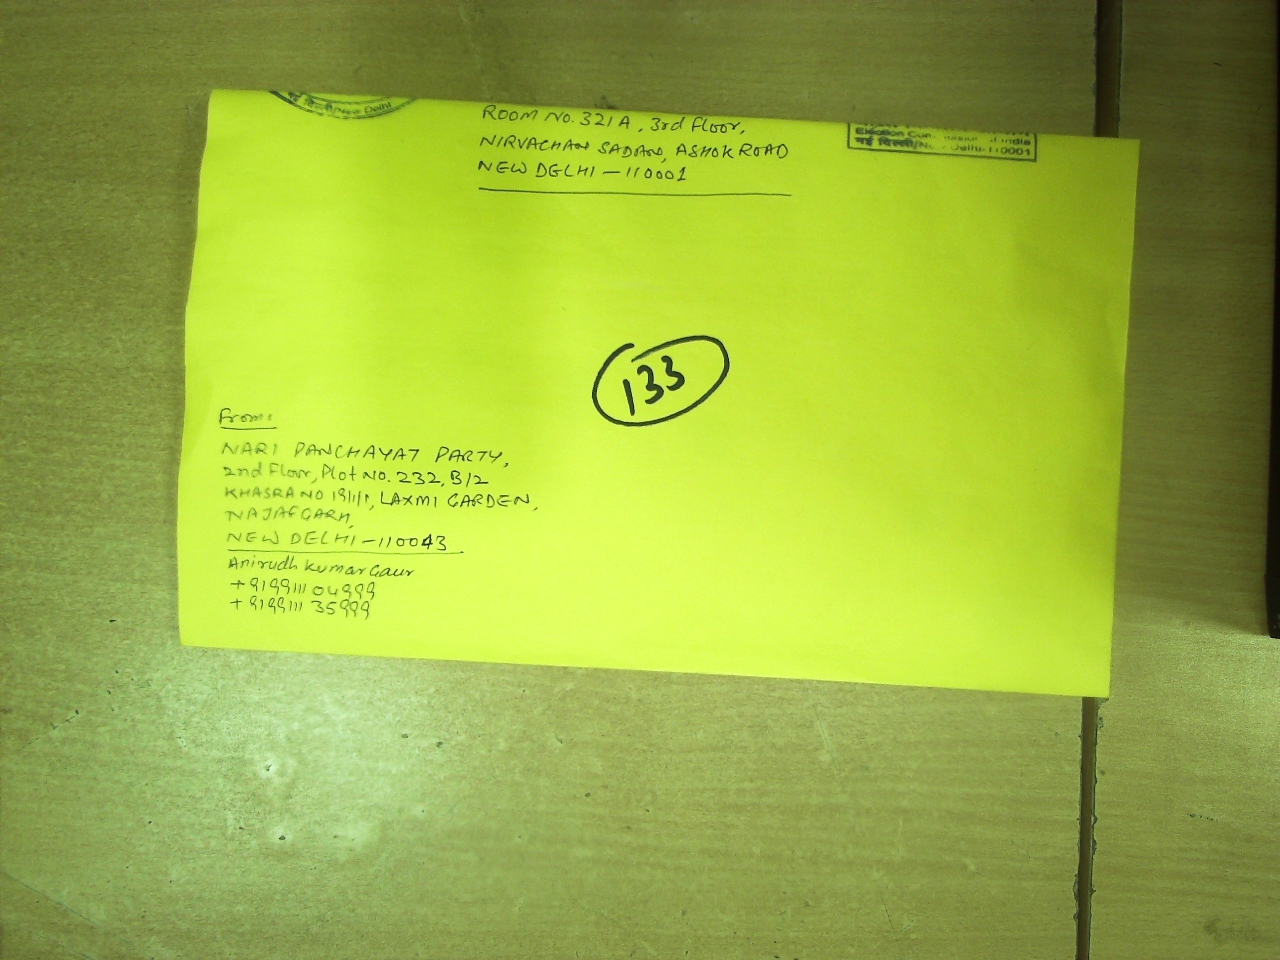 नई दिल्ली/New Delhi
ROOM NO. 321A, 3rd Floor,
NIRVACHAN SADAN, ASHOK ROAD
NEW DELHI - 110001
Election Com ission of India
नई दिल्ली/N Delhi-110001
133
From:
NARI PANCHAYAT PARTY,
2nd Floor, Plot NO. 232, B/2
KHASRA NO 19/1/1, LAXMI GARDEN,
NAJAFGARH,
NEW DELHI - 110043
Anirudh Kumar Gaur
+919911104999
+919911135999